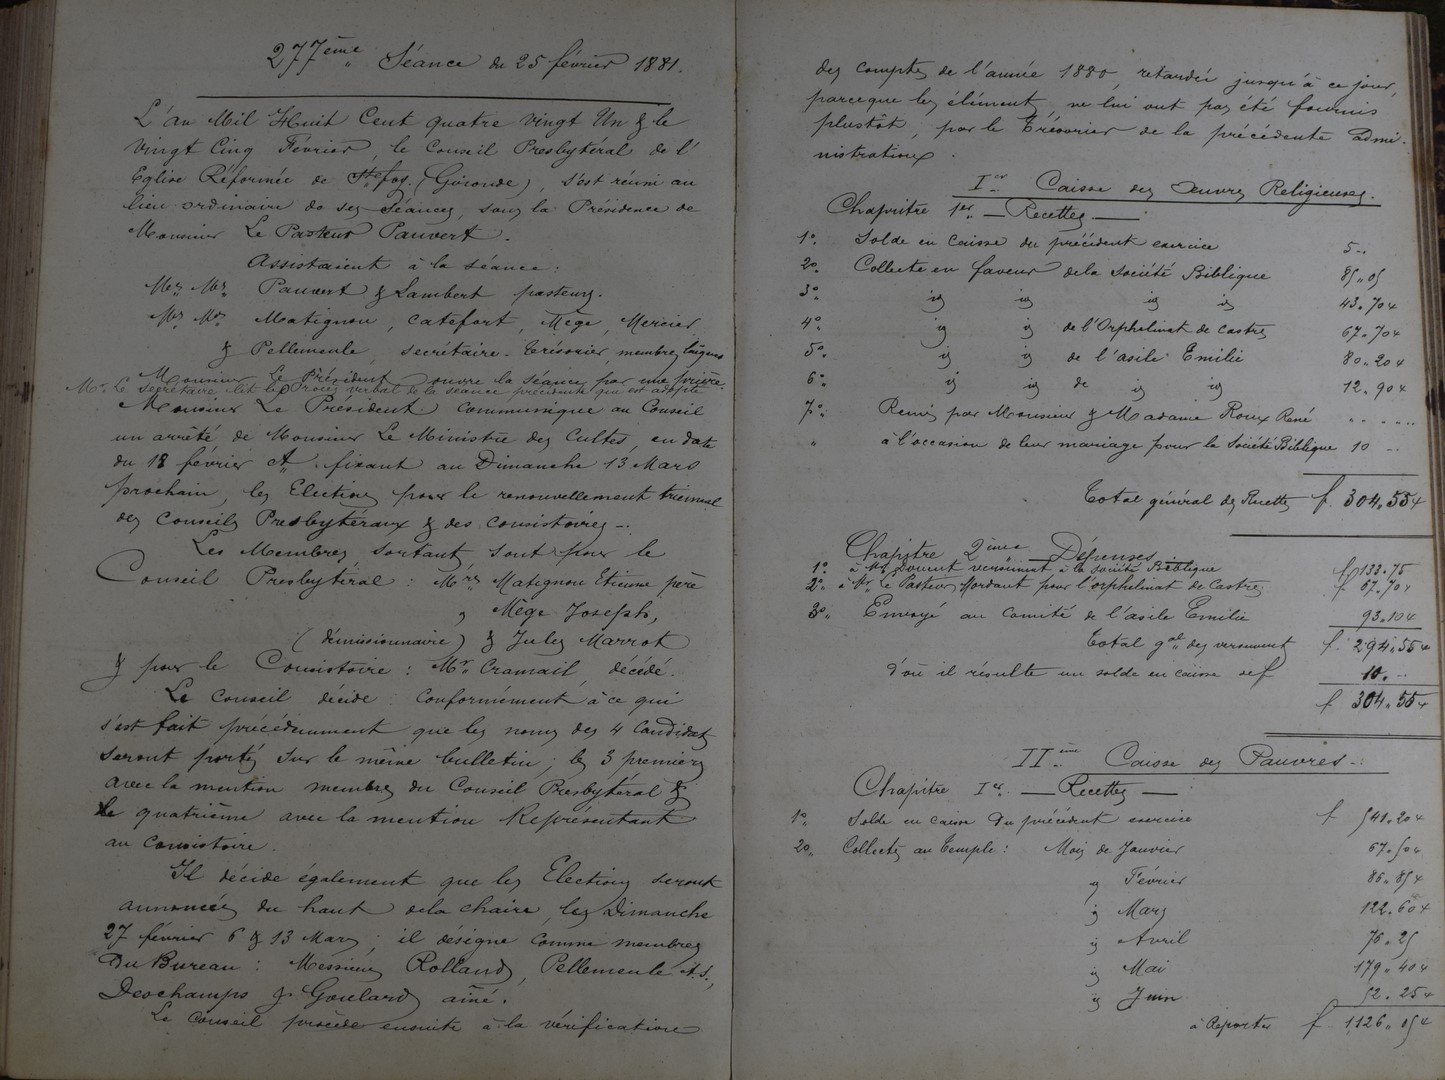 277ème Séance du 25 février 1881.
L'an Mil Huit Cent quatre vingt Un & le
Vingt Cinq Février, le Conseil Presbytéral de l'
Eglise Réformée de Ste foy (Gironde), s'est réuni au
lieu ordinaire de ses Séances, sous la Présidence de
Monsieur Le Pasteur Pauvert.
Assistaient à la séance :
Mrs Mrs Pauvert & Lambert pasteurs.
Mrs Mrs Matignon, Catefort, Mège, Mercier
& Pellemeule, secrétaire-trésorier, membres laïques
Monsieur Le Président ouvre la séance par une prière.
Mr. Le Secrétaire lit le Procès verbal de la séance précédente qui est adopté
Monsieur Le Président communique au Conseil
un arrêté de Monsieur Le Ministre des Cultes, en date
du 18 février ct fixant au Dimanche 13 Mars
prochain, les Elections pour le renouvellement triennal
des Conseils Presbytéraux & des consistoires -.
Les Membres sortant sont pour le
Conseil Presbytéral : Mrs Matignon Etienne père
, Mège Joseph,
(démissionnaire) & Jules Marrot
& pour le Consistoire : Mr. Cramail, décédé.
Le Conseil décide conformément à ce qui
s'est fait précédemment que les noms des 4 Candidats
seront portés sur le même bulletin ; les 3 premiers
avec la mention membres du Conseil Presbytéral &
le quatrième avec la mention Représentant
au Consistoire.
Il décide également que les Elections seront
annoncées du haut de la chaire, les Dimanche
27 février 6 & 13 Mars ; il désigne comme membres
Du Bureau : Messieurs Rolland, Pellemeule A.S.,
Deschamps & Goulard aîné.
Le Conseil procède ensuite à la vérification
des comptes de l'année 1880, retardée jusqu'à ce jour,
parceque les éléments ne lui ont pas été fournis
plustôt, par le Trésorier de la précédente admi-
nistration.
Ier Caisse des Œuvres Religieuses.
Chapitre 1er. — Recettes —
1o. Solde en Caisse du précédent exercice 5 -.
2o. Collecte en faveur de la Société Biblique 85,05
3o. id id id id 43.70
4o. id id de l'Orphelinat de Castres 67.70
5o. id id de l'asile Emilie 80.20
6o. id id de id id 12.90
7o. Remis par Monsieur & Madame Roux René
" à l'occasion de leur mariage pour la Société Biblique 10 --
Total général des Recettes f. 304.55
Chapitre 2ème Dépenses
1o. à Mr Douent versement à la Société Biblique f 133.75
2o. à Mr Le Pasteur Mordant pour l'orphelinat de Castres f 67.70
3o. Envoyé au comité de l'asile Emilie 93.10
Total gal des versement f. 294.55
d'où il résulte un solde en caisse de f 10. --
f. 304.55
IIème Caisse des Pauvres -.
Chapitre Ier. — Recettes —
1o. Solde en caisse Du précédent exercice f 541.20
2o. Collectes au Temple : Mois de Janvier 67.50
id Février 86.85
id Mars 122.60
id Avril 76.25
id Mai 179.40
id Juin 52.25
à Reporter f. 1,126.05